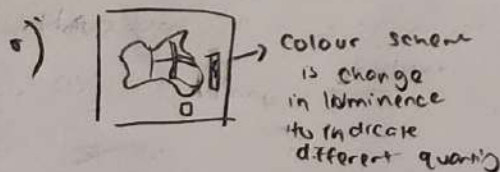 o)
colour scheme
is change
in lumminence
to indicate
different quantity